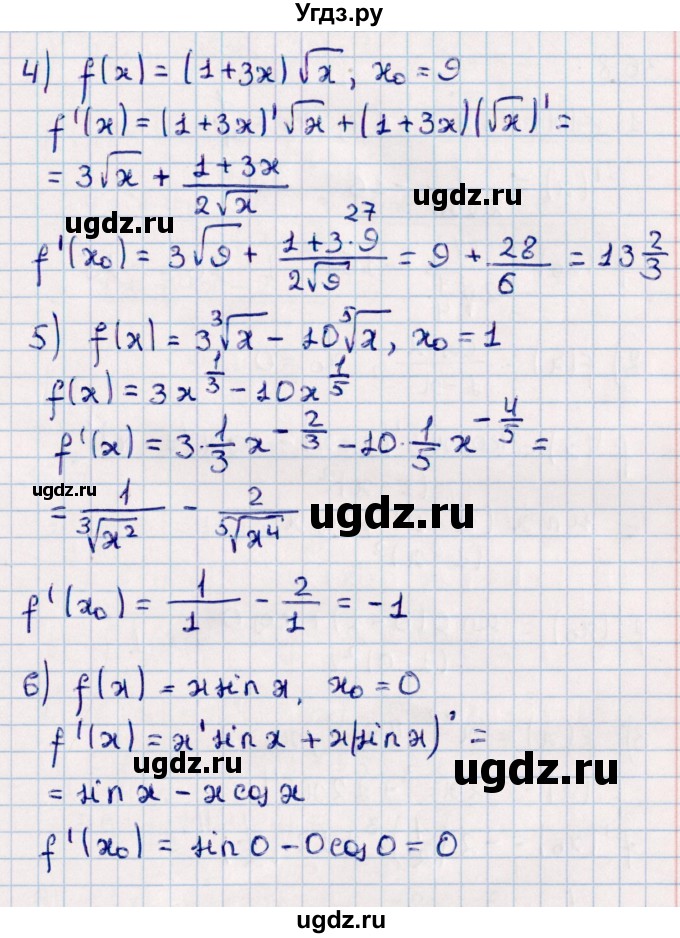 Угдз.ру
4) f(x) = (1+3x)√x; x₀ = 9
f'(x) = (1+3x)'√x + (1+3x)(√x)' =
= 3√x + (1+3x)/(2√x)
ugdz.ru
ugdz.ru
27
f'(x₀) = 3√9 + (1+3·9)/(2√9) = 9 + 28/6 = 13 2/3
ugdz.ru
ugdz.ru
5) f(x) = 3∛x - 10⁵√x, x₀ = 1
f(x) = 3x^(1/3) - 10x^(1/5)
f'(x) = 3·1/3 x^(-2/3) - 10·1/5 x^(-4/5) =
ugdz.ru
= 1/∛x² - 2/⁵√x⁴
ugdz.ru
f'(x₀) = 1/1 - 2/1 = -1
ugdz.ru
6) f(x) = x sin x, x₀ = 0
f'(x) = x' sin x + x(sin x)' =
ugdz.ru
ugdz.ru
= sin x - x cos x
f'(x₀) = sin 0 - 0 cos 0 = 0
ugdz.ru
ugdz.ru